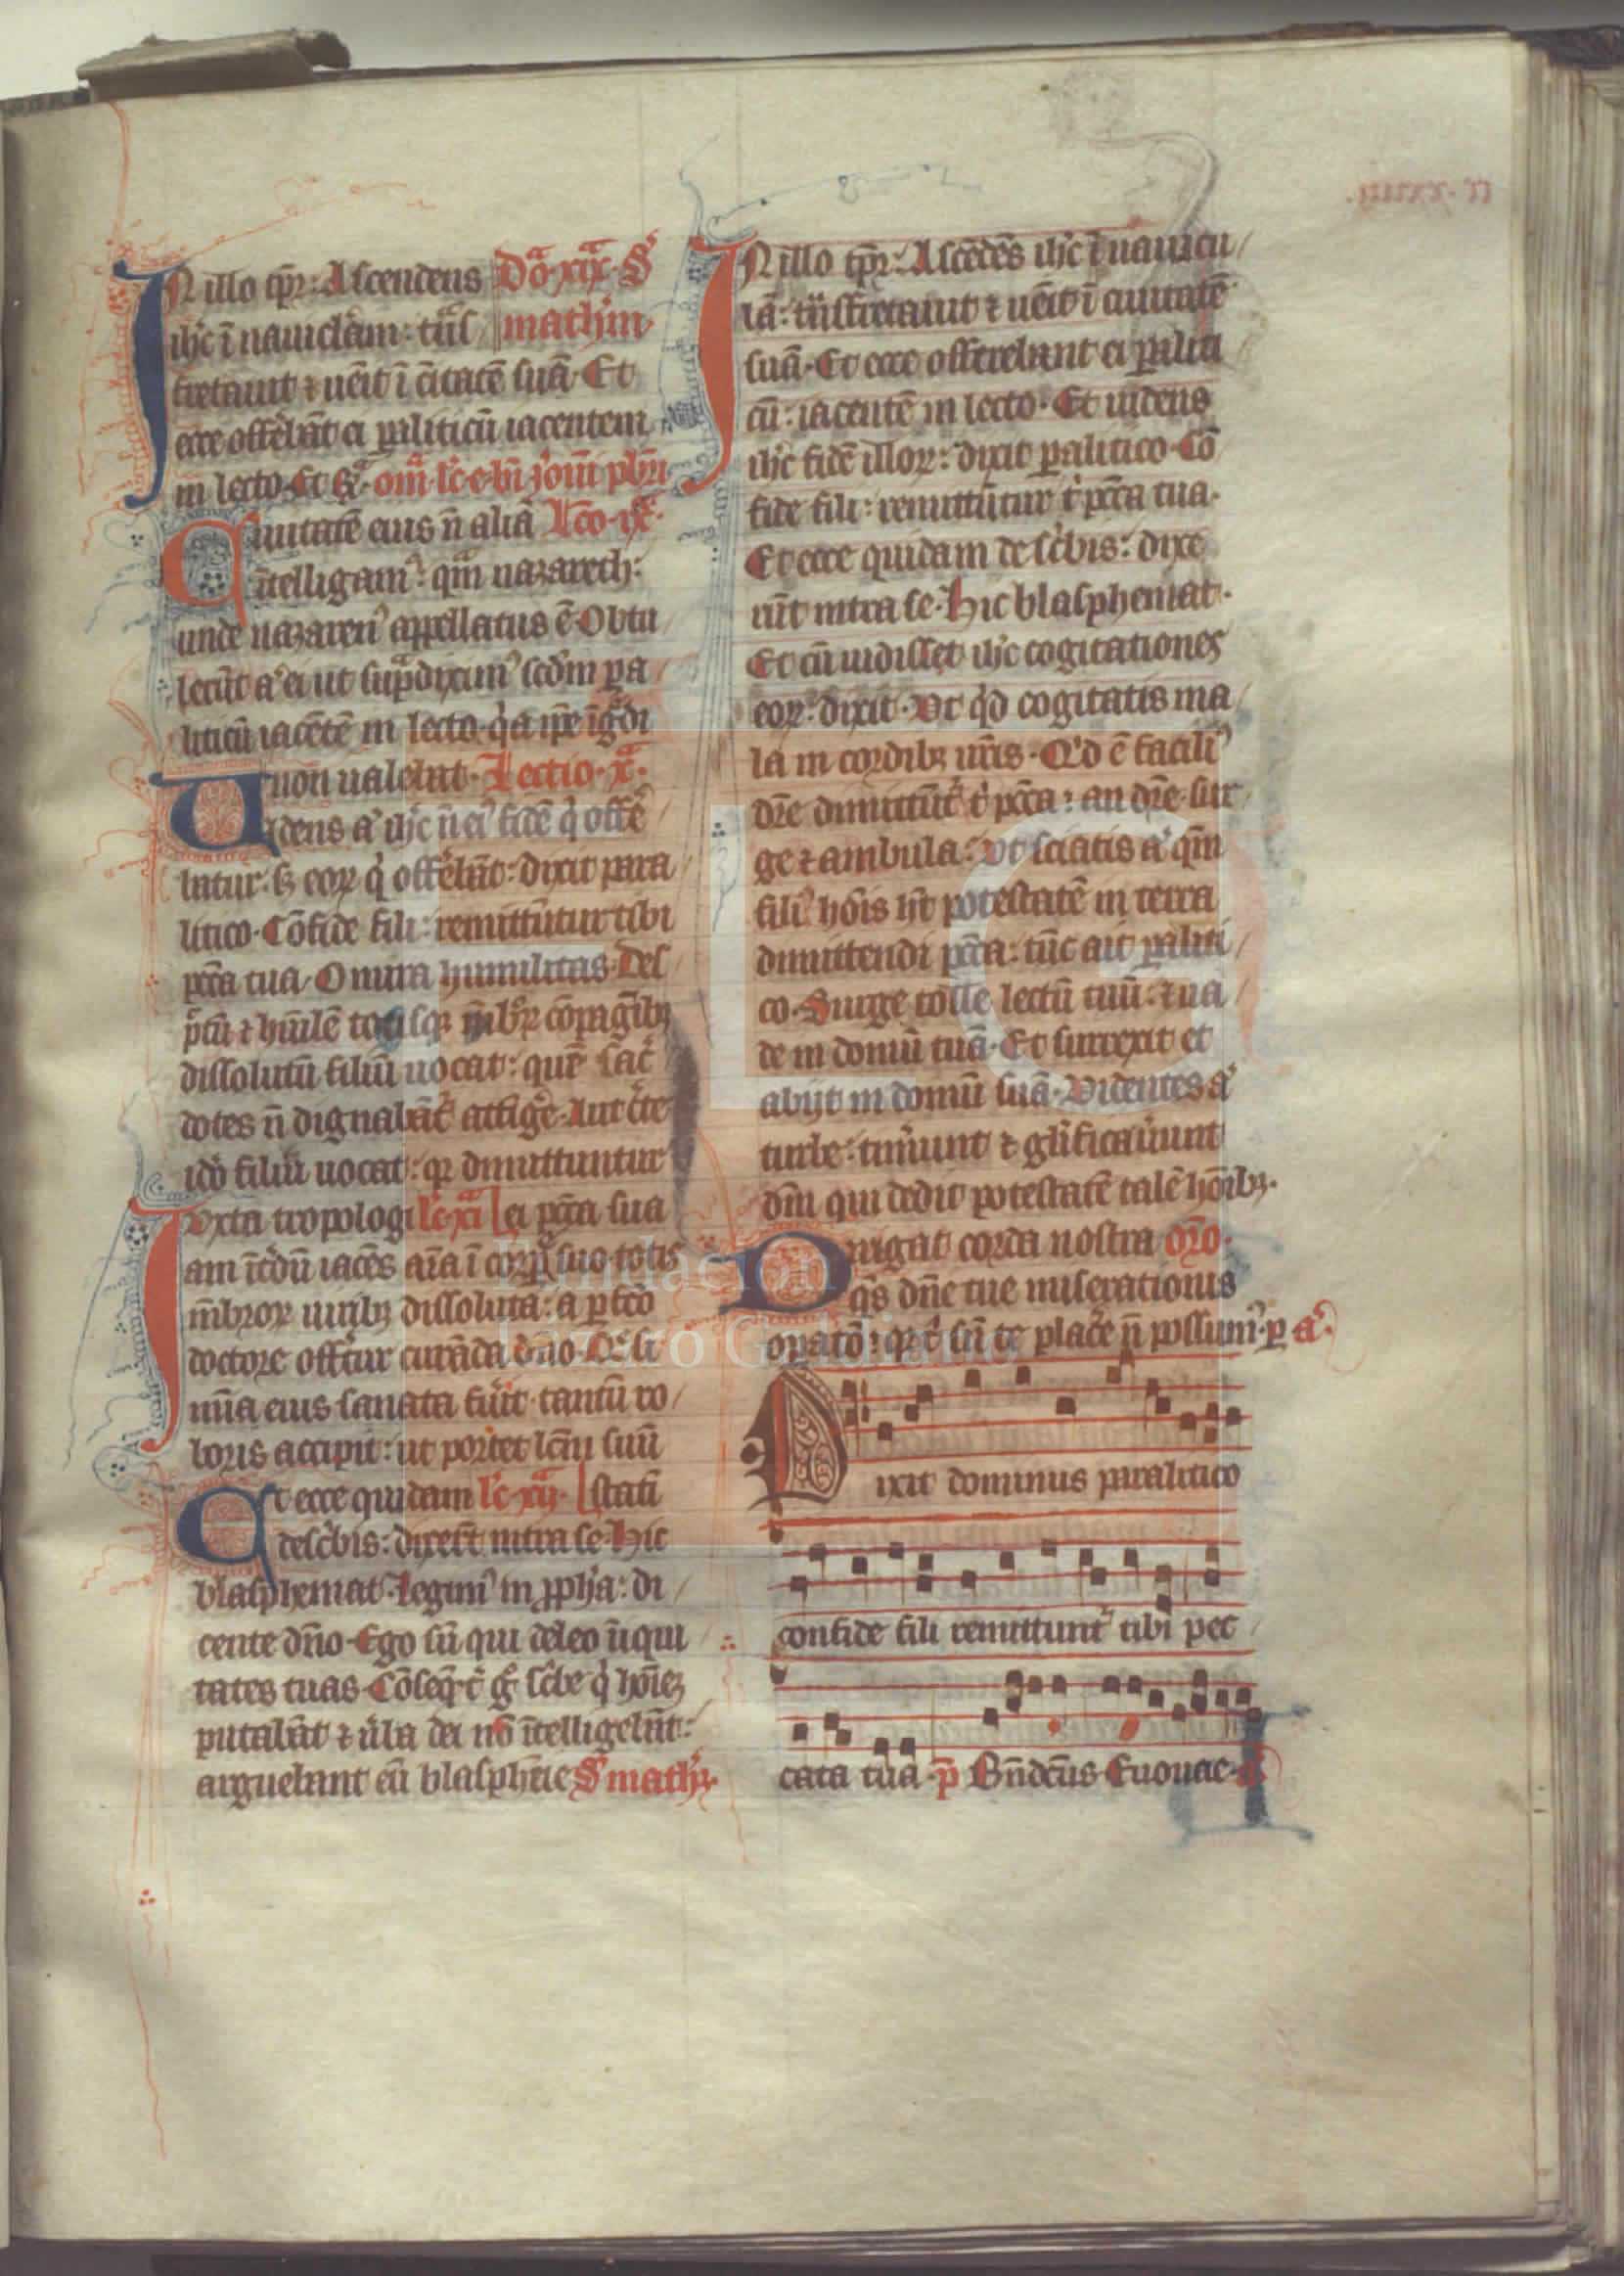 IN illo tp̄r: Ascendens Dō·xix· S'
ih'c ī nauiclam: tn̄s mathm̄
fretauit ⁊ uēit ī ciītatē suā· Et
ecce offerebāt ei paliticū iacentem
in lecto· Et
Ciuitatē eius n̄ aliā Lc̄o·ix·
ītelligam': qm̄ nazareth:
unde nazaren' appellatus ē· Obtu
lerūt a' ei ut sup̄diximꝰ scdm pa
liticū iacētē in lecto· q'a ip̄e īḡdi
non ualebat· Lectio·x·
Uidens a' ih'c n̄ eiꝰ fidē q' offe
batur· s; eoꝝ q' offerebāt: dixit para
litico· Cōfide fili: remittūtur tibi
pctā tua· O mira humilitas· Des
p̄tū ⁊ hūilē totisq; mēbroꝝ cōpagībꝫ
dissolutū filiū uocat: quē sac'
dotes n̄ dignabāt' attīg'e· Aut c'te
id'o filiū uocat: qꝛ dimittuntur
Iuxta tropologi lc̄·xi ei pctā sua
am īt'dū iacēs aīa ī corp̄e suo totis
mēbroꝝ uiribꝫ dissoluta: a p̄fc̄o
doctore offertur curāda dn̄o· Q' si
mīa eius sanata fu'it· tantū ro
boris accipit: ut portet lectū suū
Et ecce quidam lc̄·xij· statī
descbis: dixer̄t intra se· Hic
blasphemat· Legimꝰ in p̄pha: di
cente dn̄o· Ego sū qui deleo īiqui
tates tuas· Cōseq̄ter g° sc'be q' hoīeꝫ
putabāt ⁊ u'ba dei nō ītelligebāt:
arguebant eū blasphēie S' math'
IN illo tp̄r: Ascēdēs ih'c ī nauicu
lā: trāsfretauit ⁊ uēit ī ciuitatē
suā· Et ecce offerebant ei paliti
cū: iacentē in lecto· Et uidens
ih'c fidē illoꝝ: dixit palitico· Cō
fide fili: remittūtur t' pctā tua·
Et ecce quidam de sc'bis: dixe
rūt intra se· Hic blasphemat·
Et cū uidisset ih'c cogitationes
eoꝝ: dixit· Ut q'd cogitatis ma
la in cordibꝫ ur̄is· Q'd ē faciliꝰ
dr̄e dimittūt' t' pctā: an dr̄e sur
ge ⁊ ambula: Ut sciatis a' qm̄
filiꝰ hōis h't potestatē in terra
dimittendi pctā: tūc ait paliti
co· Surge tolle lectū tuū: ⁊ ua
de in domū tuā· Et surrexit et
abijt in domū suā· Videntes a'
turbe: tim'unt ⁊ gl'ificau'unt
dm̄ qui dedit potestatē talē hōībꝫ·
Dirigat corda nostra or̄o·
q̄s dn̄e tue miserationis
op̄atō: qꝛ t' sn̄ te plac'e n̄ possumꝰ· p a'·
Dixit dominus paralitico
confide fili remittuntꝰ tibi pec
cata tua· p̄ Bn̄dc̄us· Euouae·
Fundación
Lázaro Galdiano